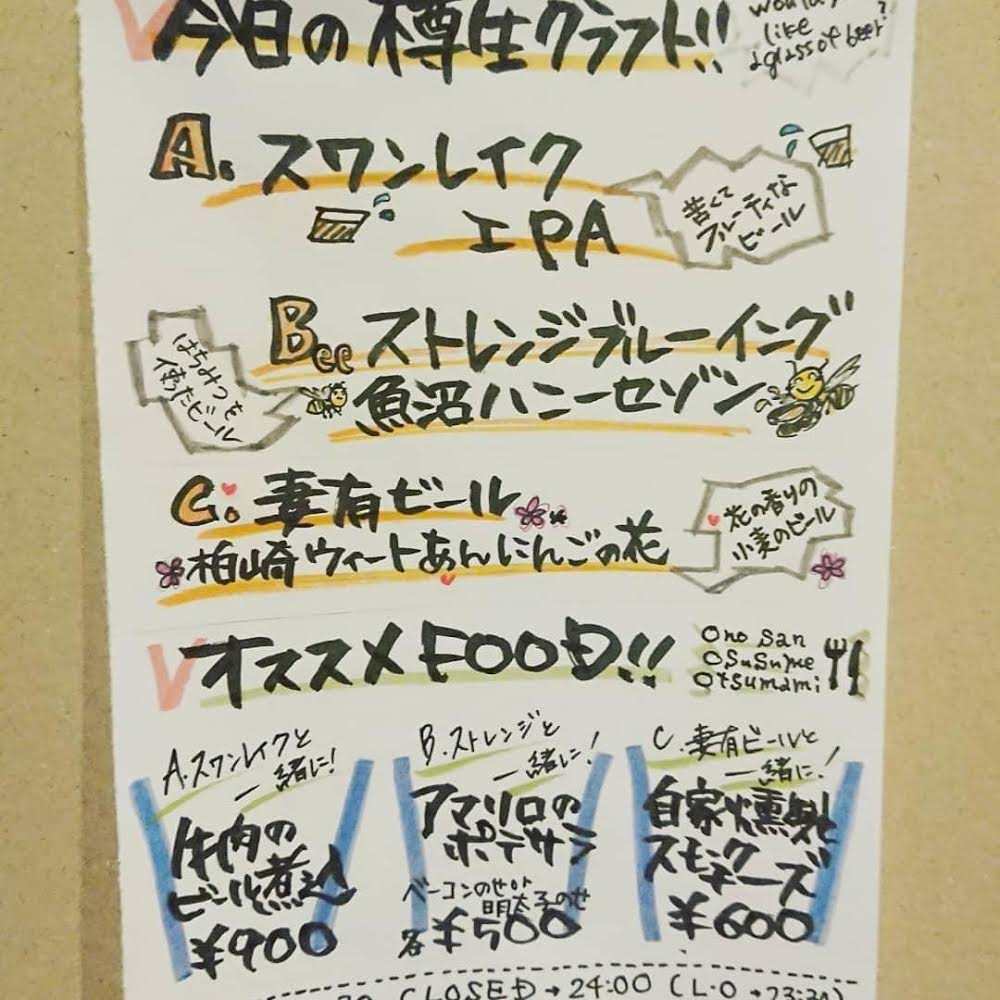 今日の樽生クラフト!!
would
like
a glass of beer?
A. スワンレイク
IPA
苦くて
フルーティな
ビール
Bee ストレンジブルーイング
魚沼ハニーセゾン
はちみつを
使ったビール
C. 妻有ビール
柏崎ウィートあんにんごの花
花の香りの
小麦のビール
オススメFOOD!!
Ono san
osusume
otsumami
A.スワンレイクと
一緒に!
牛肉の
ビール煮込み
¥900
B.ストレンジと
一緒に!
アマリロの
ポテサラ
ベーコンのせor
明太子のせ
各¥500
C.妻有ビールと
一緒に!
自家燻製
スモークチーズ
¥600
CLOSED→24:00 (L.O→23:30)